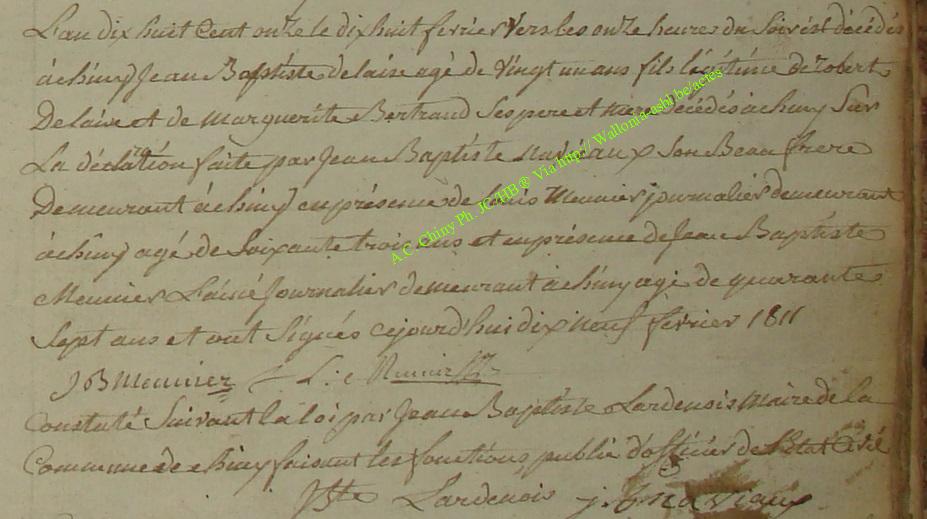 L'an dix huit Cent onze le dix huit fevrier vers les onze heures du Soir est décédés
à chiny Jean Baptiste delaise agé de vingt un ans fils légitime de Robert
Delaise et de Marguerite Bertrand Ses pere et Mere décédés à chiny Sur
La déclration faite par Jean Baptiste naviaux Son Beau frere
Demeurant à chiny en présence de Louis Meunier journalier demeurant
à chiny agé de Soixante trois ans et en présence de Jean Baptiste
Meunier L'ainé Journalier demeurant à chiny agé de quarante
Sept ans et ont Signés cejourd'hui dix neuf fevrier 1811
J B Meunier
Constaté Suivant la loi par Jean Baptiste Lardenois Maire de la
Commune de chiny faisant les fonctions publié d'officier de l'Etat Civil
JBte Lardenois j. b naviaux
A.C. Chiny Ph. JCHB ® Via http// Wallonia-asbl.be/actes